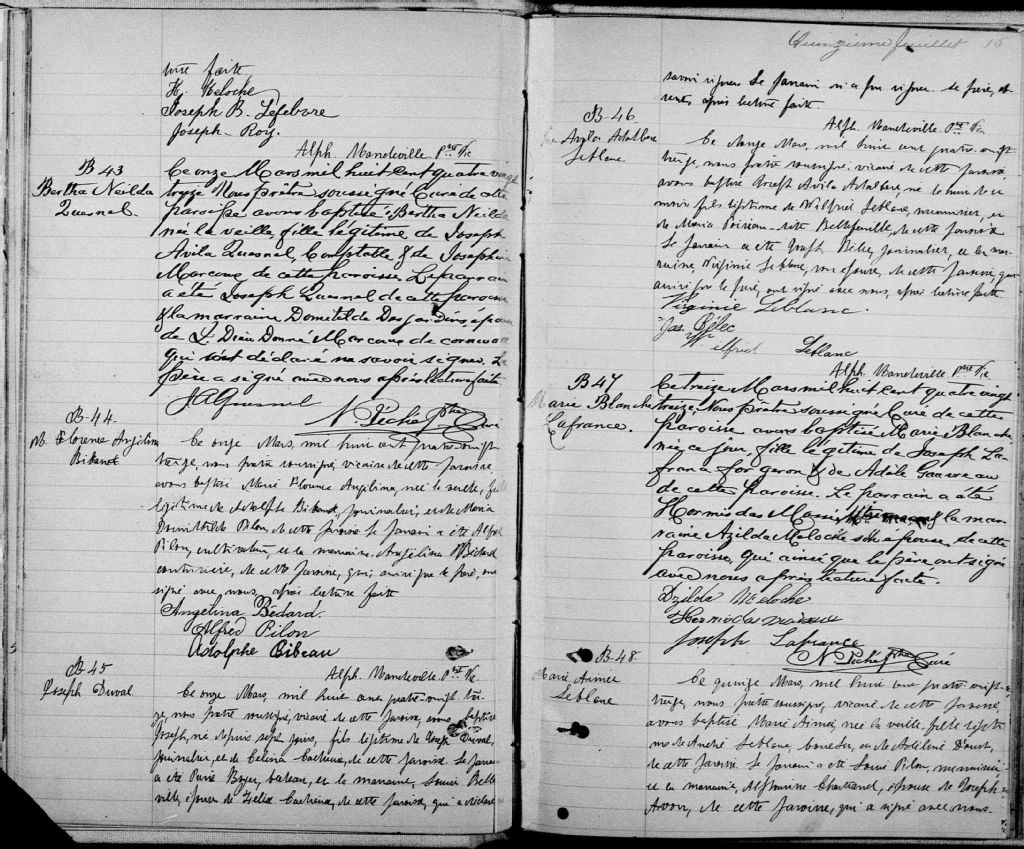 ture faite.
H. Meloche
Joseph B. Lefebvre
Joseph Roy.
Alph. Mandeville Ptre Vic
B 43
Bertha Neilda
Quesnel.
Ce onze Mars mil huit cent quatre vingt
treize Nous prêtre soussigné Curé de cette
paroisse avons baptisé Bertha Neilda
née la veille, fille légitime de Joseph
Avila Quesnel, Constable & de Josephine
Marcoux de cette paroisse. Le parrain
a été Joseph Quesnel de cette paroisse
& la marraine Domitilde Desjardins, épouse
de L. Dieu Donné Marcoux de
qui ont déclaré ne savoir signer. Le
père a signé avec nous après lecture faite
J A Quesnel
N. Piché ptre Curé
B-44.
M. Florence Angélina
Ce onze Mars, mil huit cent quatre-vingt
treize, nous prêtre soussigné, vicaire de cette paroisse,
avons baptisé Marie Florence Angélina, née la veille, fille
légitime de Adolphe journalier, et de Maria
Domithilde Pilon, de cette paroisse. Le parrain a été Alfred
Pilon, cultivateur, et la marraine, Angélina Bédard
couturière, de cette paroisse, qui, ainsi que le père, ont
signé avec nous, après lecture faite
Angelina Bédard.
Alfred Pilon
Adolphe Bibeau
Alph. Mandeville Ptre Vic.
B-45
Joseph Duval
Ce onze Mars, mil huit cent quatre-vingt trei-
ze, nous prêtre soussigné, vicaire de cette paroisse, avons baptisé
Joseph, né depuis sept jours, fils légitime de Joseph Duval,
journalier, et de Celina de cette paroisse. Le parrain
a été Boyer, et la marraine, Belle-
ville, épouse de Félix de cette paroisse, qui a déclaré
Quinzieme feuillet 15
savoir signer. Le parrain n'a pu signer. Le père, ab-
sent, après lecture faite.
Alph. Mandeville Ptre Vic.
B-46
Adalbert
Leblanc.
Ce onze Mars, mil huit cent quatre-vingt
treize, nous prêtre soussigné, vicaire de cette paroisse,
avons baptisé Joseph Avila Adalbert né le huit de ce
mois fils légitime de Wilfrid Leblanc, menuisier, et
de Maria dite Bellefeuille, de cette paroisse
Le parrain a été Joseph journalier, et la mar-
raine, Virginie Leblanc, son épouse, de cette paroisse, qui
ainsi que le père, ont signé avec nous, après lecture faite
Virginie Leblanc.
Jos.
Wilfrid Leblanc
Alph. Mandeville Ptre Vic
B 47
Marie Blanche
Lafrance.
Ce treize Mars mil huit cent quatre vingt
treize, Nous prêtre soussigné Curé de cette
paroisse avons baptisé Marie Blanche,
née ce jour, fille légitime de Joseph La-
france forgeron & de Adèle
de cette paroisse. Le parrain a été
Hormisdas & la mar-
raine Azilda Meloche son épouse, de cette
paroisse, qui ainsi que le père ont signé
avec nous après lecture faite.
Dzilda Meloche
Hermisdas
Joseph Lafrance
N Piché ptre Curé
B-48.
Marie Aimée
Leblanc
Ce quinze Mars, mil huit cent quatre-vingt-
treize, nous prêtre soussigné, vicaire de cette paroisse,
avons baptisé Marie Aimée, née la veille, fille légiti-
me de André Leblanc, et de
de cette paroisse. Le parrain a été Pilon, menuisier
et la marraine, Alphonsine épouse de Joseph
de cette paroisse, qui a signé avec nous.